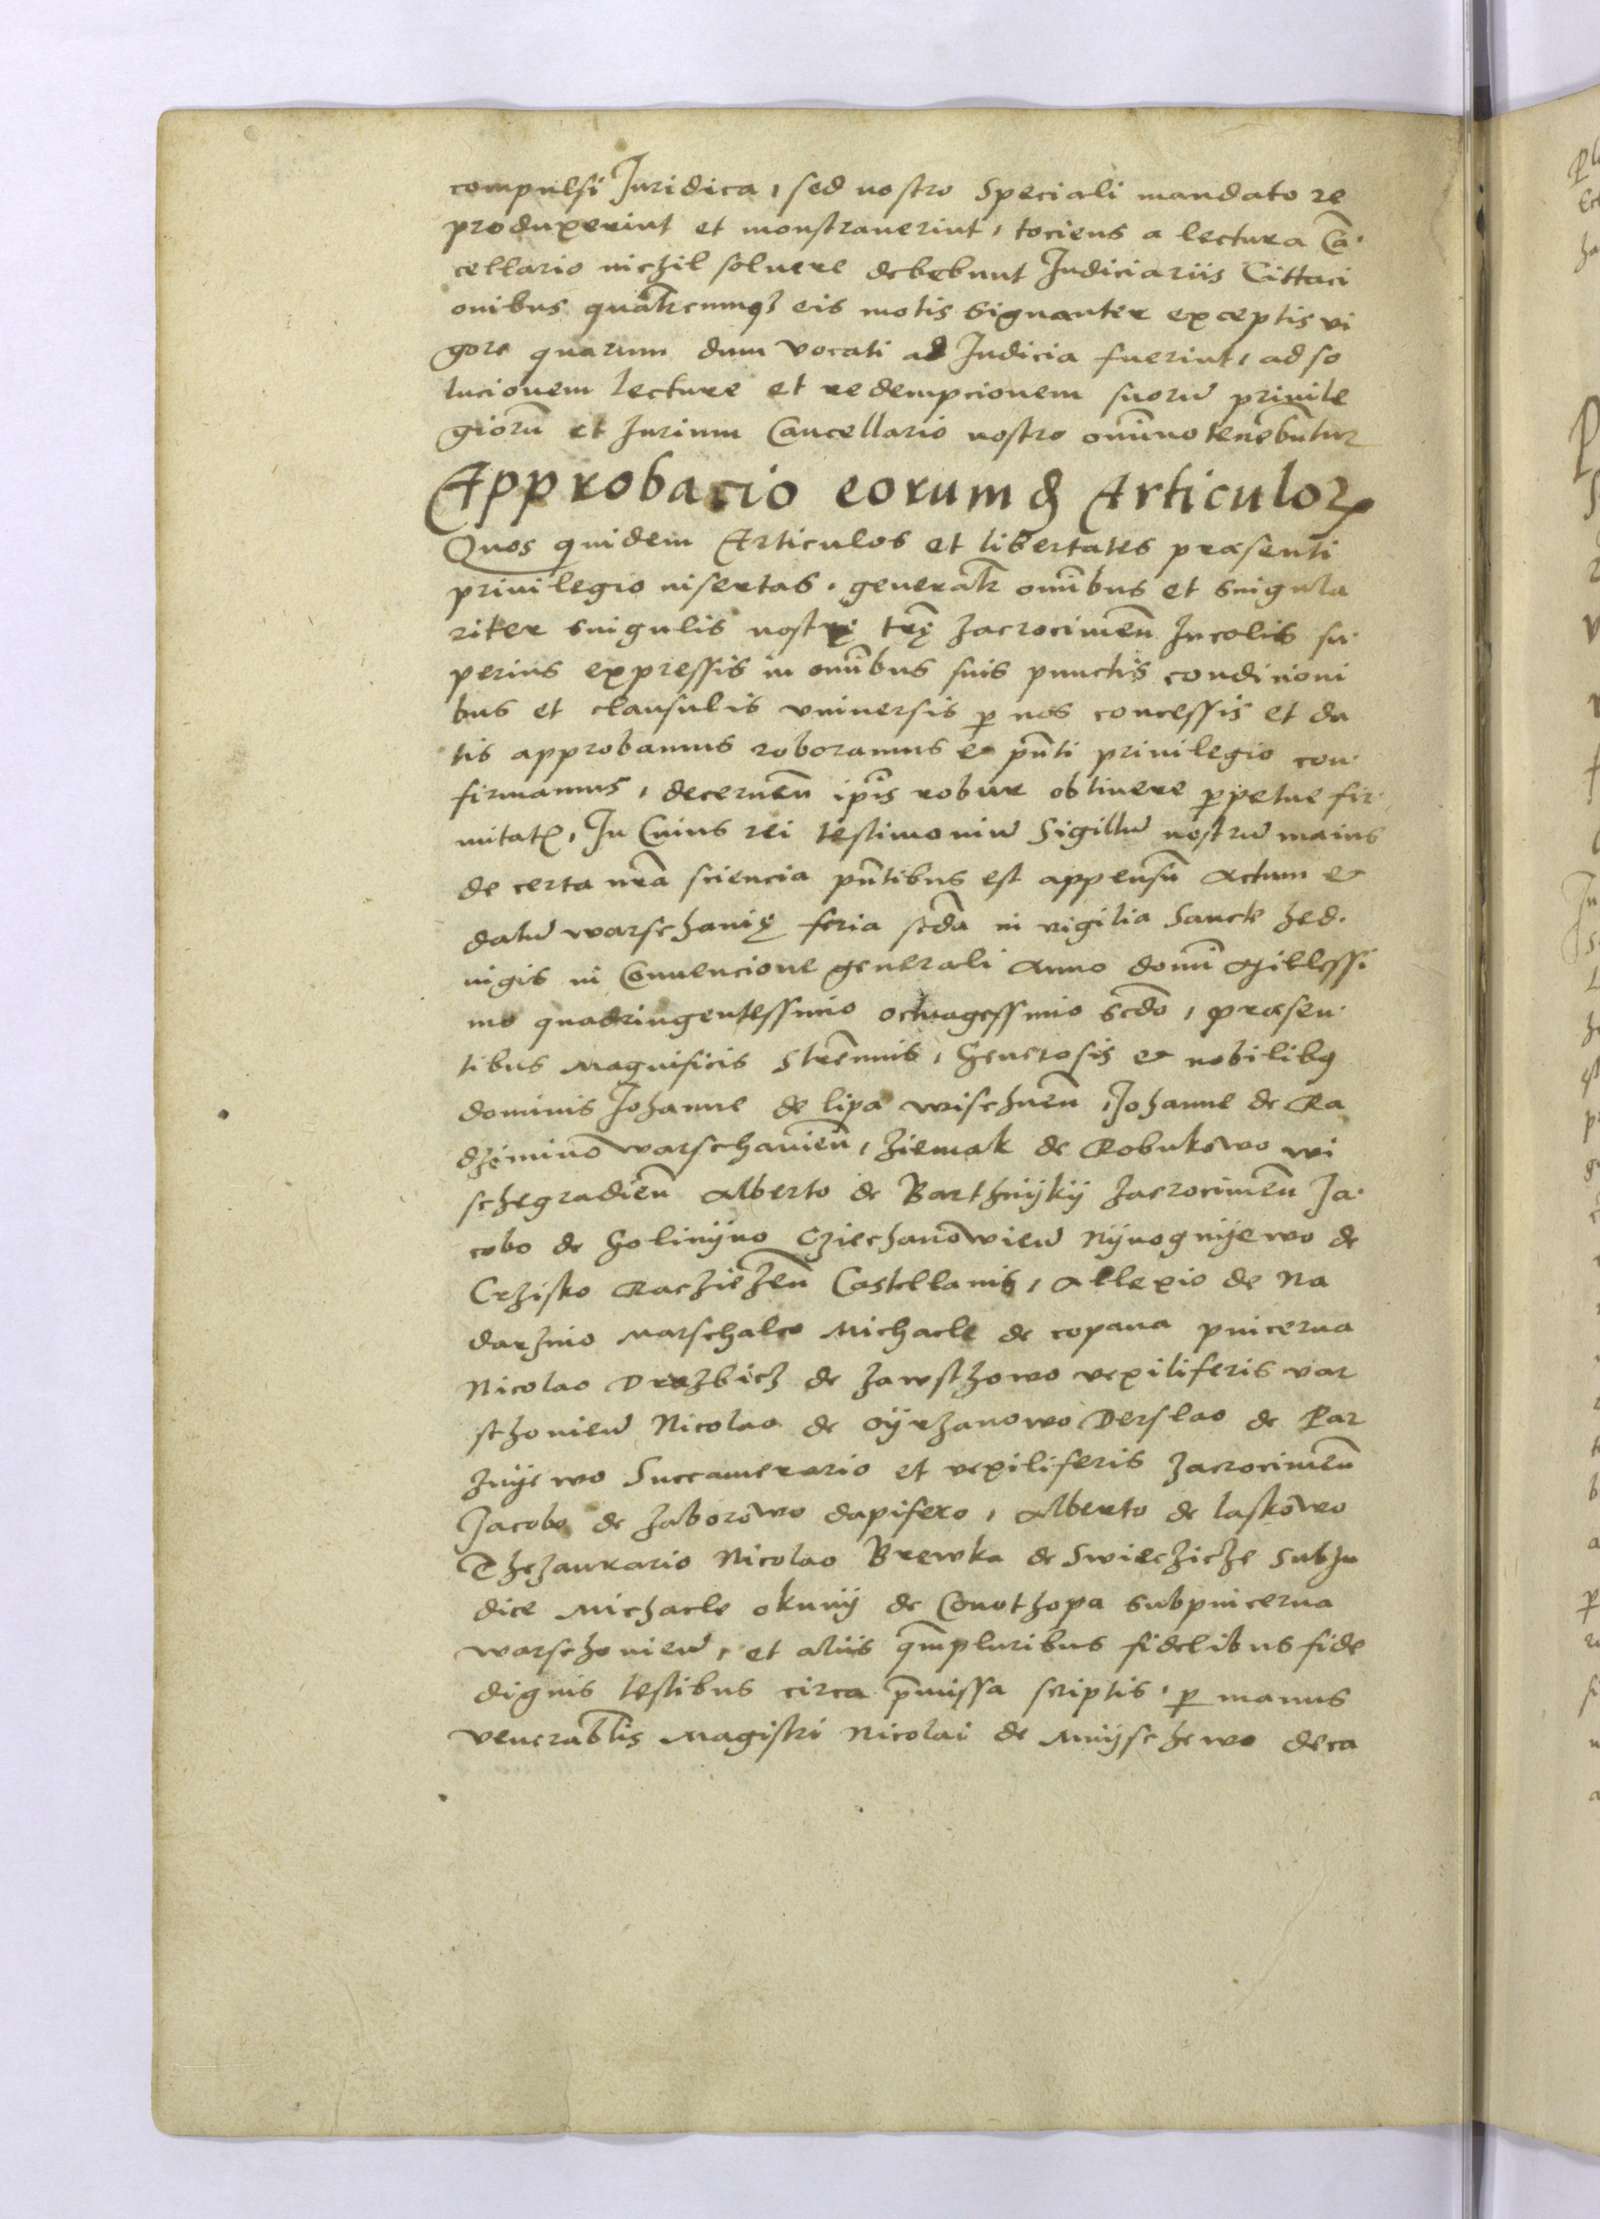 compulsi Juridica, sed nostro Speciali mandato re
produxerint et monstrauerint, tociens a lectura Cã
cellario nichil soluere debebunt Judiciariis Cittaci
onibus qualr̃cumqꝫ eis motis signanter exceptis vi
gore quarum dum vocati ad Judicia fuerint, ad so
lucionem lecture et redempcionem suorũ priuile
giorũ et Jurium Cancellario nostro om̃ino tenebũtur
Approbacio eorumd Articuloꝝ
Quos quidem Articulos et libertates præsenti
priuilegio insertas. generalr̃ om̃ibus et singula
riter singulis nostrę trę̃ Zacrocimeñ Incolis su
perius expressis in om̃ibus suis punctis condicioni
bus et clausulis vniuersis ꝑ nos concessis et da
tis approbamus roboramus et pñti priuilegio con
firmamus, decerneñ ip̃is robur obtinere ꝑpetue fir
mitatꝭ, In Cuius rei testimoniũ Sigillũ nostrũ maius
de certa nrã sciencia pñtibus est appensũ Actum et
datũ warschauię feria scdã in vigilia Sancte hed
uigis in Conuencione generali Anno domĩ Millessi
mo quadringentessimo octuagessimo scdõ, præsen
tibus Magnificis Strẽnuis, Generosis et nobilibꝰ
dominis Johanne de lipa wischneñ, Johanne de Ra
dzimino warschauieñ, Ziemak de Robukowo wi
schegradieñ Alberto de Barthnÿkÿ Zacrocimeñ Ja
cobo de Golinÿno Cziechanowieñ Nÿnognÿewo de
Crzisko Raczięzeñ Castellanis, Allexio de Na
darzino Marschalco Michaele de copana pincerna
Nicolao Drzbicz de Zawschowo vexiliferis var
schouieñ Nicolao de Oÿrzanowo Derslao de Par
znÿewo Succamerario et vexiliferis Zacrocimeñ
Jacobo de Zaborowo dapifero, Alberto de laskowo
Thezaurario Nicolao Brewka de Swieczicze Subju
dice Michaele okunÿ de Conothopa subpincerna
warschouieñ, et aliis q̃mpluribus fidelibus fide
dignis testibus circa p̃missa scriptis, ꝑ manus
venerabl̃is Magistri Nicolai de Mnÿschewo deca